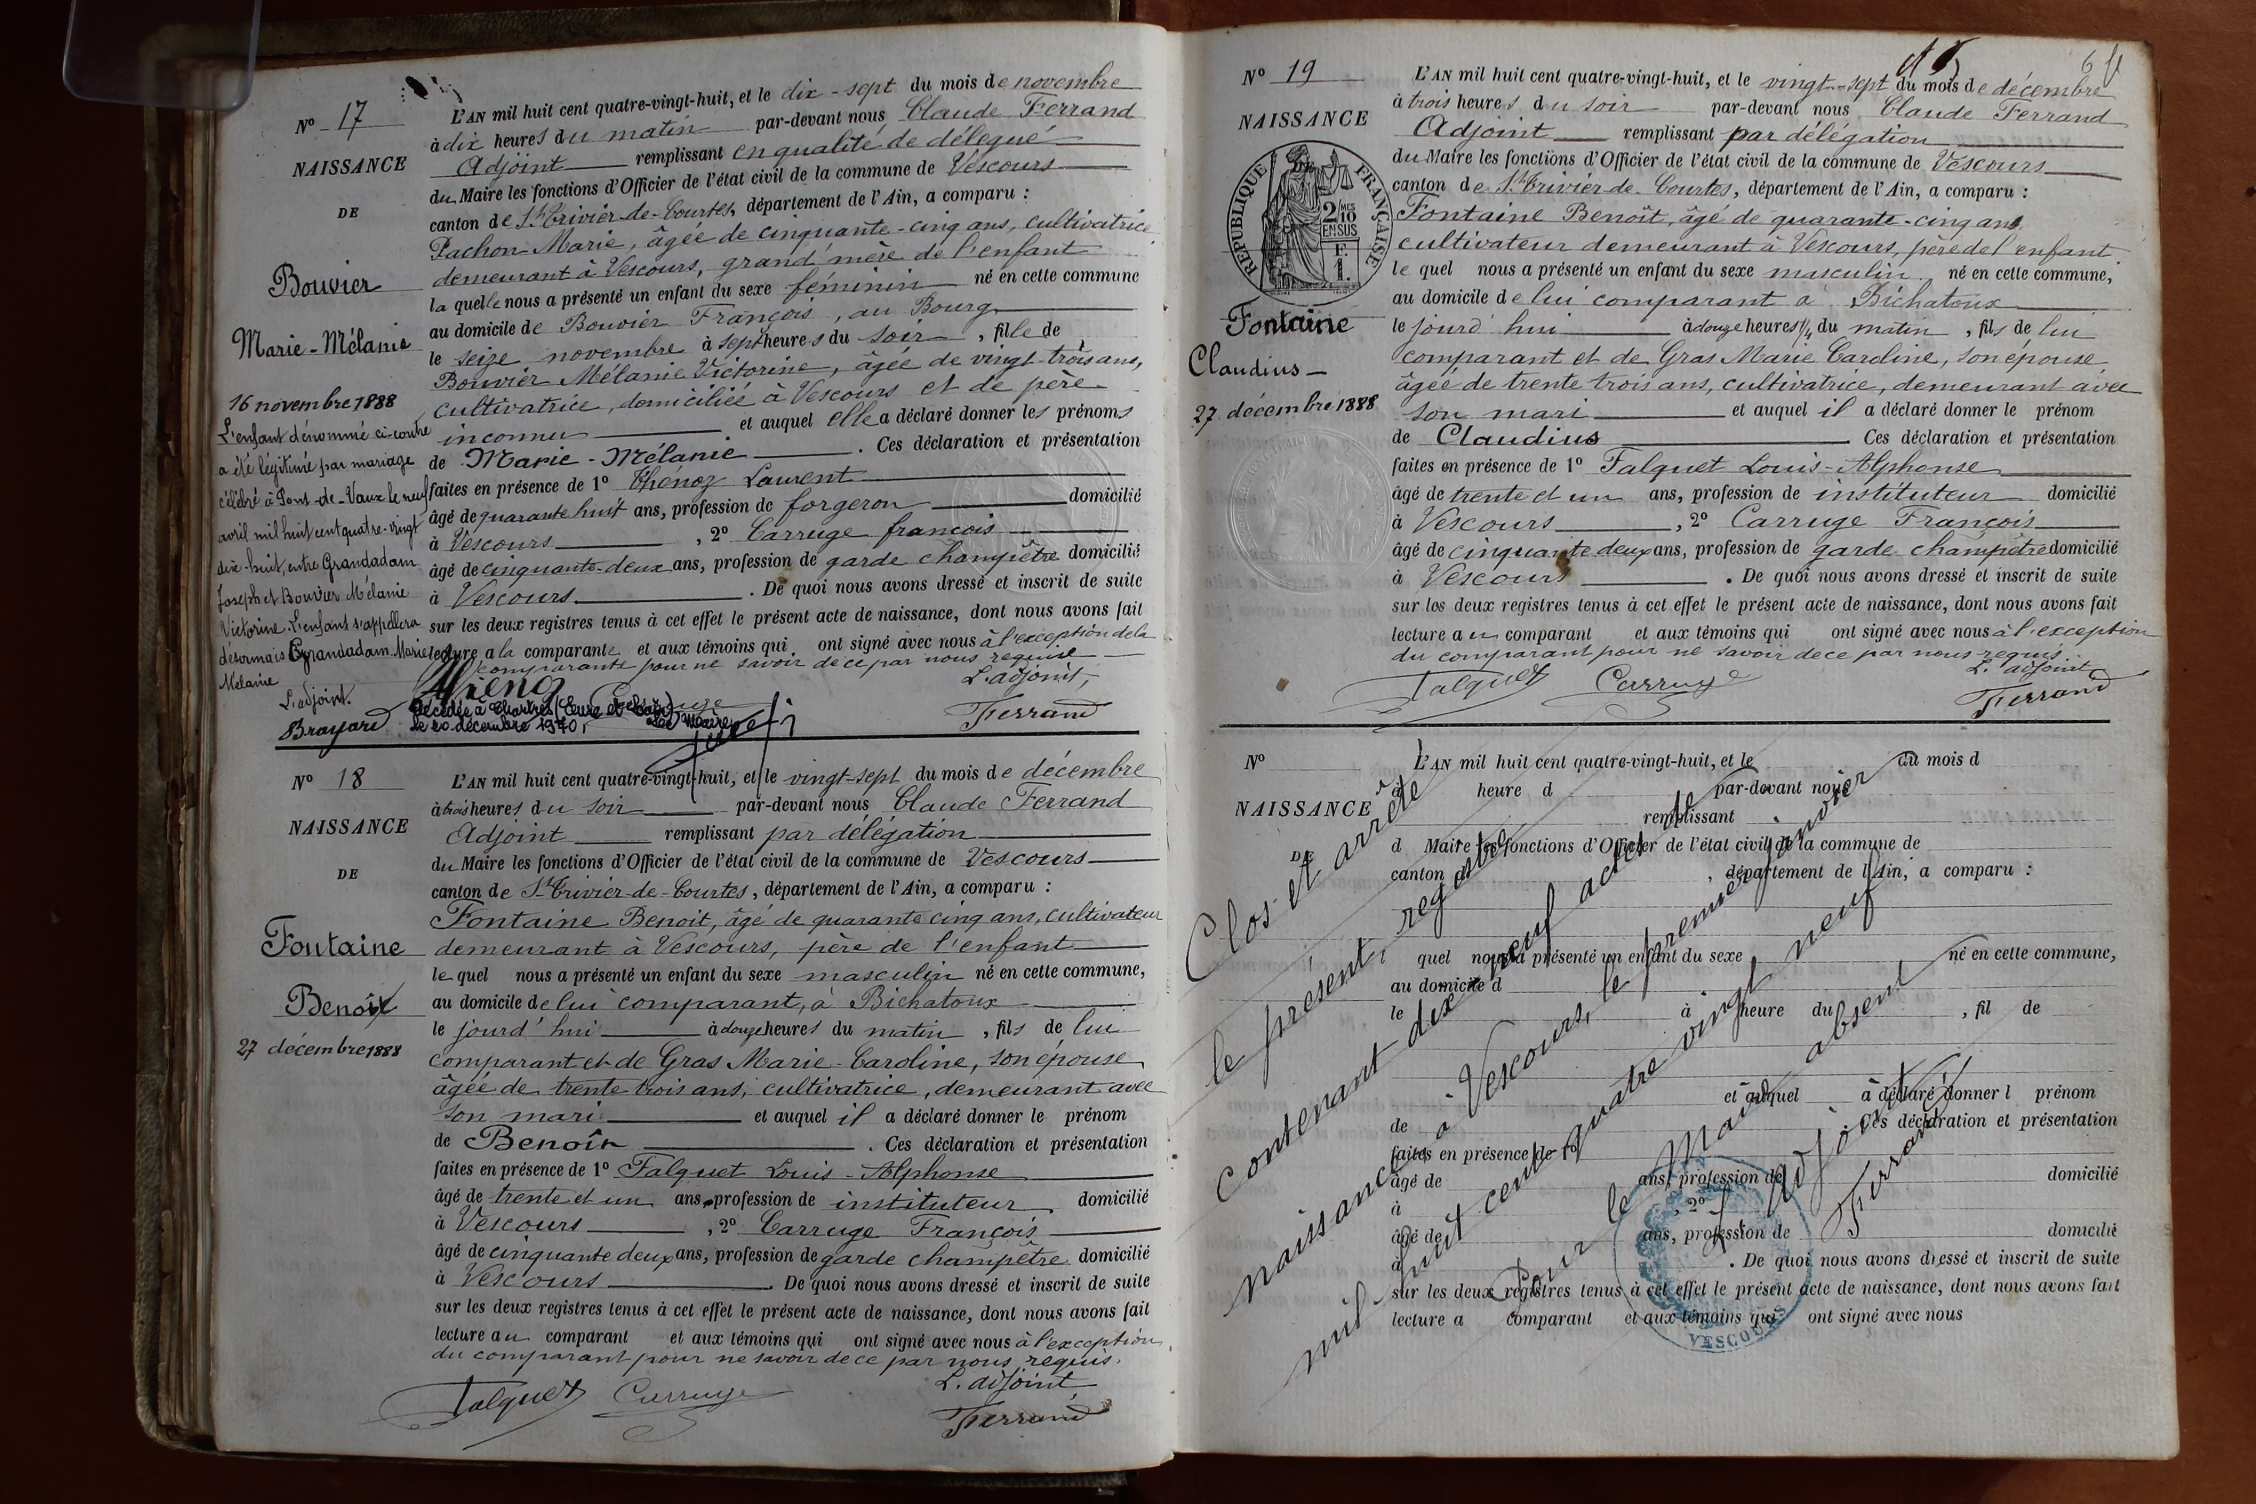 Nº 17
NAISSANCE
DE
Bouvier
Marie-Mélanie
16 novembre 1888
L'enfant dénommé ci-contre
a été légitimé par mariage
célébré à Pont-de-Vaux le neuf
avril mil huit cent quatre-vingt
dix-huit, entre Grandadam
Joseph et Bouvier Mélanie
Victorine. L'enfant s'appellera
désormais Grandadam Marie
Mélanie
L'adjoint.
Brayard
L'AN mil huit cent quatre-vingt-huit, et le dix-sept du mois de novembre
à dix heures du matin par-devant nous Claude Ferrand
Adjoint remplissant en qualité de délégué
du Maire les fonctions d'Officier de l'état civil de la commune de Vescours
canton de St Trivier-de-Courtes, département de l'Ain, a comparu :
Pachon Marie, âgée de cinquante-cinq ans, cultivatrice
demeurant à Vescours, grand'mère de l'enfant
la quelle nous a présenté un enfant du sexe féminin né en cette commune
au domicile de Bouvier François, au Bourg
le seize novembre à sept heures du soir, fille de
Bouvier Mélanie Victorine, âgée de vingt-trois ans,
cultivatrice, domiciliée à Vescours et de père
inconnu et auquel elle a déclaré donner les prénoms
de Marie-Mélanie. Ces déclaration et présentation
faites en présence de 1º Thénoz Laurent
âgé de quarante huit ans, profession de forgeron domicilié
à Vescours, 2º Carruge françois
âgé de cinquante-deux ans, profession de garde champêtre domicilié
à Vescours. De quoi nous avons dressé et inscrit de suite
sur les deux registres tenus à cet effet le présent acte de naissance, dont nous avons fait
lecture a la comparante et aux témoins qui ont signé avec nous à l'exception de la
comparante pour ne savoir de ce par nous requise
L'adjoint,
Thénoz Carruge
Ferrand
Décédée à Chartres (Eure et Loir)
le 20 décembre 1970,
Le Maire
Nº 18
NAISSANCE
DE
Fontaine
Benoît
27 décembre 1888
L'AN mil huit cent quatre-vingt-huit, et le vingt-sept du mois de décembre
à trois heures du soir par-devant nous Claude Ferrand
Adjoint remplissant par délégation
du Maire les fonctions d'Officier de l'état civil de la commune de Vescours
canton de St Trivier-de-Courtes, département de l'Ain, a comparu :
Fontaine Benoit, âgé de quarante cinq ans, cultivateur
demeurant à Vescours, père de l'enfant
le quel nous a présenté un enfant du sexe masculin né en cette commune,
au domicile de lui comparant, à Bichatoux
le jourd'hui à douze heures du matin, fils de lui
comparant et de Gras Marie-Caroline, son épouse
âgée de trente trois ans, cultivatrice, demeurant avec
son mari et auquel il a déclaré donner le prénom
de Benoît. Ces déclaration et présentation
faites en présence de 1º Falquet Louis-Alphonse
âgé de trente et un ans, profession de instituteur domicilié
à Vescours, 2º Carruge François
âgé de cinquante deux ans, profession de garde champêtre domicilié
à Vescours. De quoi nous avons dressé et inscrit de suite
sur les deux registres tenus à cet effet le présent acte de naissance, dont nous avons fait
lecture au comparant et aux témoins qui ont signé avec nous à l'exception
du comparant pour ne savoir de ce par nous requis.
L'adjoint
Falquet Carruge
Ferrand
Nº 19
NAISSANCE
DE
RÉPUBLIQUE FRANÇAISE
2 MES
10
EN SUS
1 F.
Fontaine
Claudius
27 décembre 1888
L'AN mil huit cent quatre-vingt-huit, et le vingt-sept du mois de décembre
à trois heures du soir par-devant nous Claude Ferrand
Adjoint remplissant par délégation
du Maire les fonctions d'Officier de l'état civil de la commune de Vescours
canton de St Trivier-de-Courtes, département de l'Ain, a comparu :
Fontaine Benoît, âgé de quarante-cinq ans
cultivateur demeurant à Vescours, père de l'enfant
le quel nous a présenté un enfant du sexe masculin né en cette commune,
au domicile de lui comparant à Bichatoux
le jourd'hui à douze heures 1/4 du matin, fils de lui
comparant et de Gras Marie Caroline, son épouse
âgée de trente trois ans, cultivatrice, demeurant avec
son mari et auquel il a déclaré donner le prénom
de Claudius. Ces déclaration et présentation
faites en présence de 1º Falquet Louis-Alphonse
âgé de trente et un ans, profession de instituteur domicilié
à Vescours, 2º Carruge François
âgé de cinquante deux ans, profession de garde champêtre domicilié
à Vescours. De quoi nous avons dressé et inscrit de suite
sur les deux registres tenus à cet effet le présent acte de naissance, dont nous avons fait
lecture au comparant et aux témoins qui ont signé avec nous à l'exception
du comparant pour ne savoir de ce par nous requis
L'adjoint
Falquet Carruge
Ferrand
Nº
NAISSANCE
DE
L'AN mil huit cent quatre-vingt-huit, et le du mois d
à heure d par-devant nous
remplissant
d Maire les fonctions d'Officier de l'état civil de la commune de
canton d , département de l'Ain, a comparu :
quel nous a présenté un enfant du sexe né en cette commune,
au domicile d
le à heure du , fil de
et auquel a déclaré donner l prénom
de . Ces déclaration et présentation
faites en présence de 1º
âgé de ans, profession de domicilié
à , 2º
âgé de ans, profession de domicilié
à . De quoi nous avons dressé et inscrit de suite
sur les deux registres tenus à cet effet le présent acte de naissance, dont nous avons fait
lecture a comparant et aux témoins qui ont signé avec nous
Clos et arrêté
le présent registre
contenant dix neuf actes de
naissances à Vescours, le premier janvier
mil huit cent quatre vingt neuf
Pour le Maire absent
L'adjoint
Ferrand
VESCOURS